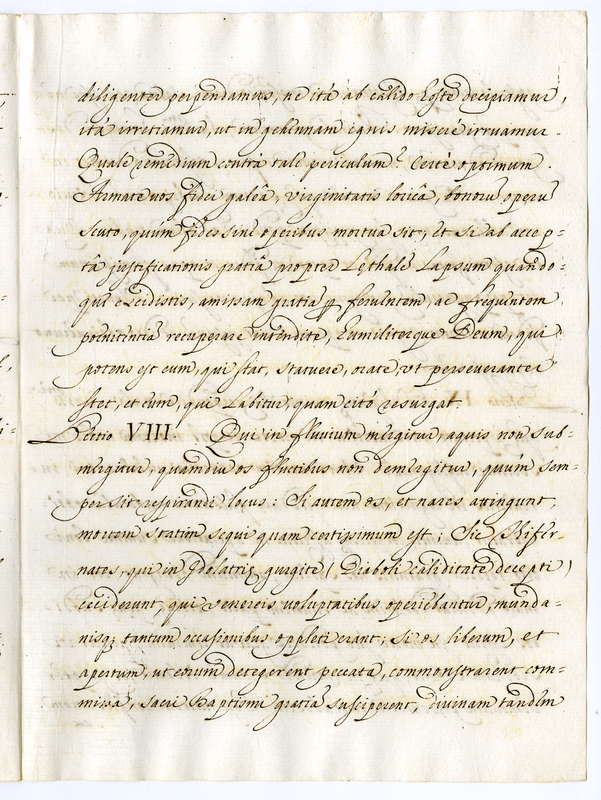 diligenter perpendamus, ne ità ab calido hoste decipiamur,
ità irretiamur, ut in gehennam ignis miserè irruamur.
Quale remedium contra tale periculum? Certè optimum.
Armate vos fidei galeâ, virginitatis loricâ, bonorũ operũ
scuto, quùm fides sine operibus mortua sit, et si ab accep=
tâ justificationis gratiâ propter Lethalẽ Lapsum quando=
que excidistis, amissam gratiã ꝑ feruentem, ac frequentem
poenitentiã recuperare intendite, humiliterque Deum, qui
potens est eum, qui stat, statuere, orate, vt perseveranter
stet, et eum, qui Labitur, quam citò resurgat.
Lectio VIII. Qui in fluvium mergitur, aquis non sub=
mergitur, quamdiu os fluctibus non demergitur, quùm sem=
per sit respirandi locus: Si autem os, et nares attingunt,
mortem statim sequi quam certissimum est; Sic Tifer=
nates, qui in Idolatrię gurgite (Diaboli caliditate decepti)
ceciderunt, qui venereis voluptatibus operiebantur, munda=
nisq; tantum occasionibus oppleti erant; si os liberum, et
apertum, ut eorum detegerent peccata, commonstrarent com=
missa, sacri Baptismi gratiã susciperent, divinam tandem